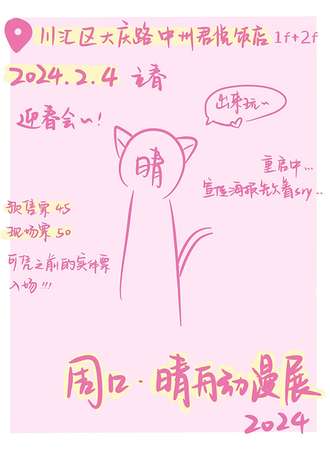 川汇区大庆路中州君悦饭店 1f+2f
2024.2.4 立春
迎春会~!
出来玩~
晴
重启中...
宣传海报先欠着sry..
预售票 45
现场票 50
可凭之前的实体票
入场!!!
周口·晴冉动漫展
2024